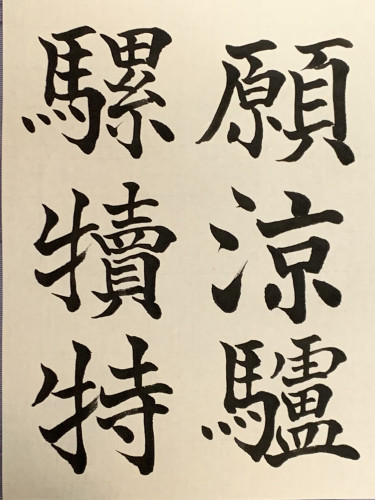 願涼驢
騾犢特